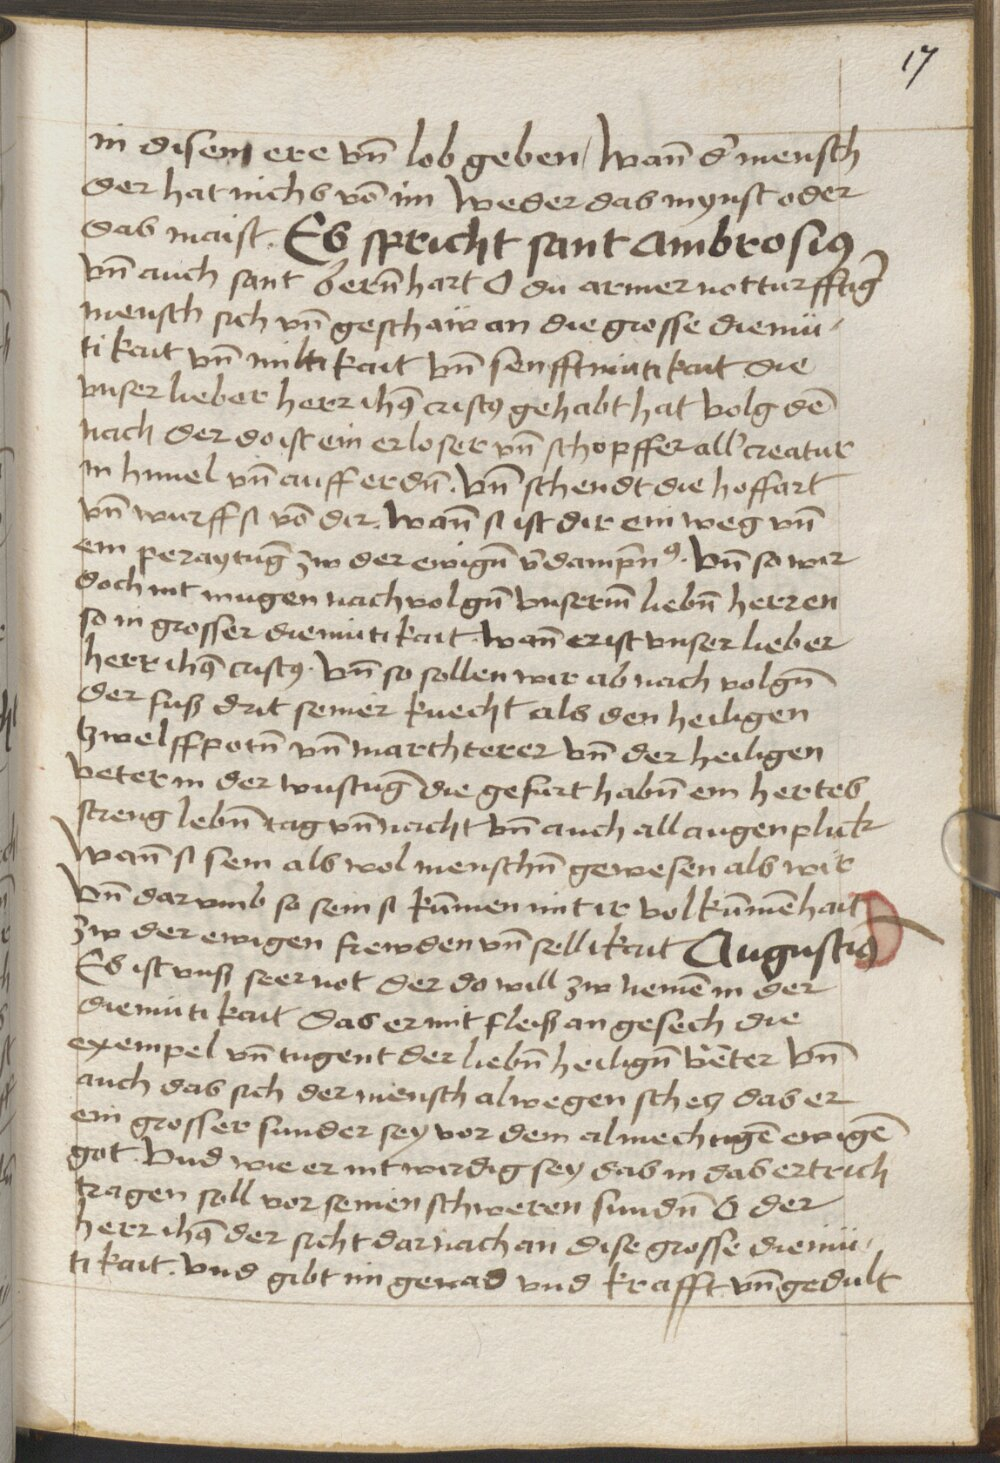 17
in disem ere vn̄ lob geben / Wan̄ d' mensch
der hat nichs vō im Weder das mynst oder
das maist. Es spricht sant Ambrosiꝰ
vn̄ auch sant bern̄hart O du armer notturfftig'
mensch sich vn̄ geschaw an die grosse diemü-
tikait vn̄ miltikait vn̄ senfftmütikait die
vnser lieber herr ihꝰ cristꝰ gehabt hat volg dē
nach der do ist ein erloser vn̄ schopffer all' creatur
in himel vn̄ auff erdn̄. vn̄ schendt die hoffart
vn̄ wurff si vō dir. Wan̄ si ist dir ein weg vn̄
ein peraytuḡ zw der ewign̄ v'dampn̄ꝰ. Vn̄ so wir
doch nit mugen nachvolgn̄ vnserm̄ liebn̄ herren
so in grosser diemütikait. Wan̄ er ist vnser lieber
herr ihꝰ cristꝰ. vn̄ so sollen wir ab nach volgn̄
der fuß drit seiner knecht als den heiligen
tzwelffpotn̄ vn̄ marchterer vn̄ der heiligen
veter in der wustuḡ die gefurt habn̄ ein hertes
streng lebn̄ tag vn̄ nacht vn̄ auch all augenplick
Wan̄ si sein als wol menschn̄ gewesen als wir
Vn̄ dar vmb so sein si kūmen mit ir volkūmēhait
zw der ewigen frewden vn̄ sellikait Augustiꝰ
Es ist vnß seer not der do will zw nemē in der
diemütikait das er mit fleiß an gesech die
exempel vn̄ tugent der liebn̄ heilign̄ vēter vn̄
auch das sich der mensch alwegen schetz das er
ein grosser sunder sey vor dem almechtigē ewigē
got. Vnd wie er nit wirdig sey das in das ertrich
tragen soll vor seinen schweren sundn̄ O der
herr ihꝰ der sicht darnach an dise grosse diemü-
tikait. vnd gibt im genad vnd krafft vn̄ gedult